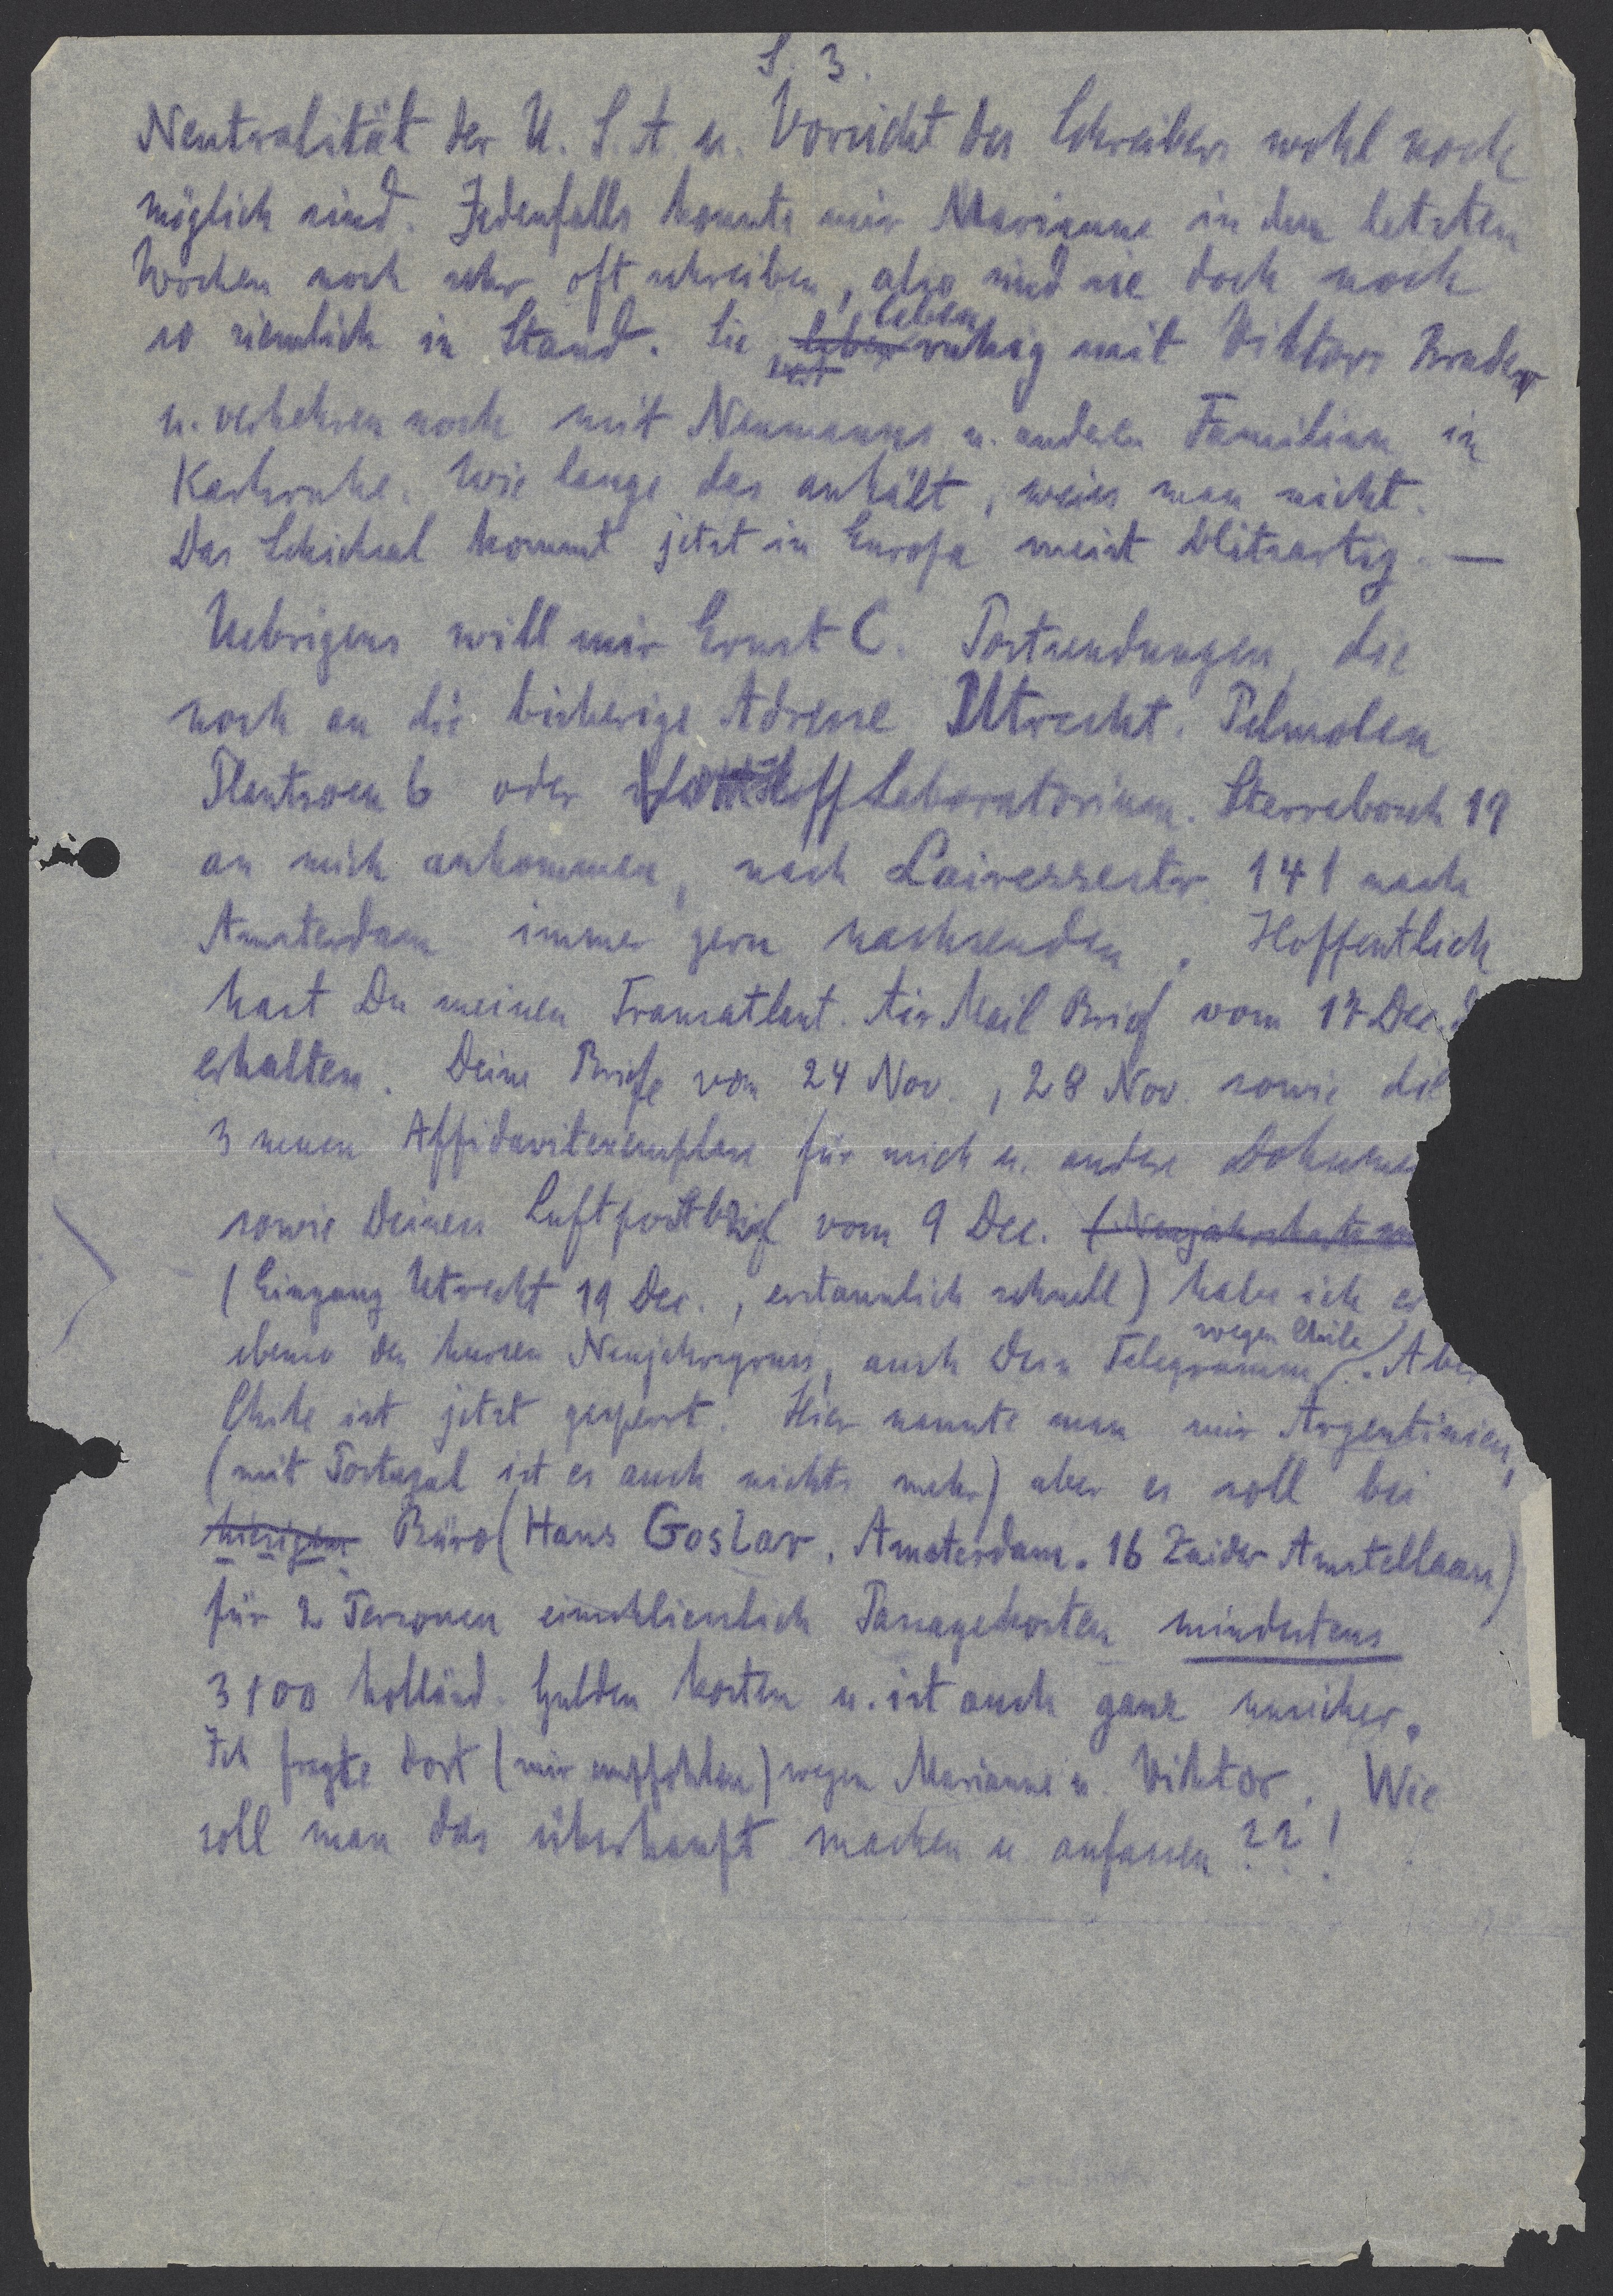 S. 3.
Neutralität der U. S. A. u. Vorsicht des Schreibers wohl noch
möglich sind. Jedenfalls konnte mir Marianne in den letzten
Wochen noch sehr oft schreiben, also sind sie doch noch
so ziemlich in Stand. Sie leben ruhig mit Viktors Bruder
u. verkehren noch mit Neumanns u. anderen Familien in
Karlsruhe. Wie lange das anhält, weiss man nicht.
Das Schicksal kommt jetzt in Europa meist blitzartig. —
Uebrigens will mir Ernst C. Postsendungen, die
noch an die bisherige Adresse Utrecht. Pelmolen
Plantsoen 6 oder Laboratorium. Sterrebosch 19
an mich ankommen, nach Lairessestr. 141 nach
Amsterdam immer gern nachsenden. Hoffentlich
hast Du meinen Transatlant. Air Mail Brief vom 17 Dec
erhalten. Deine Briefe von 24 Nov., 28 Nov. sowie die
3 neuen Affidavitexemplare für mich u. andere Dokume
sowie Deinen Luftpostbrief vom 9 Dec. (Neujahrskarte
(Eingang Utrecht 19 Dec., erstaunlich schnell) habe ich er
ebenso den kurzen Neujahrsgruss, auch Dein Telegramm wegen Chile. Aber
Chile ist jetzt gesperrt. Hier nannte man mir Argentinien,
(mit Portugal ist es auch nichts mehr) aber es soll bei
hiesigem Büro (Hans Goslar. Amsterdam. 16 Zuider Amstellaan)
für 2 Personen einschliesslich Passagekosten mindestens
3100 holländ. Gulden kosten u. ist auch ganz unsicher.
Ich fragte dort (mir empfohlen) wegen Marianne u. Viktor. Wie
soll man das überhaupt machen u anfassen ??!